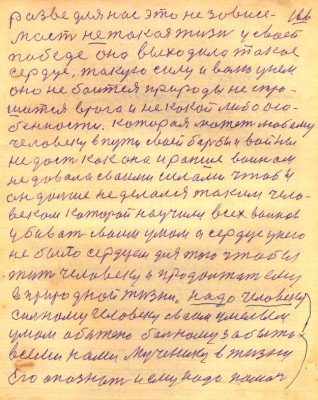 разве для нас это не зависе- 166
мость не такая жизн у своей
победе она выходила такое
сердце, такую силу и волю у нем
оно не боится природы не стра-
шится врага и не какой либо осо-
бенности. которая может любому
человеку в пути своей борьбы и войны
не дост как она и раньше воинам
не довала своими силами чтобы
он дольше не делался таким чело-
веком которой научила всех воинов
убивать своим умом а сердце у него
не было сердцем для того чтобы
жить человеку и продолжать ему
в природной жизни, надо человеку
сильному человеку своим умелым
умом обижено больному забыто-
всеми нами мученику в жизни
его опознат и ему надо помоч